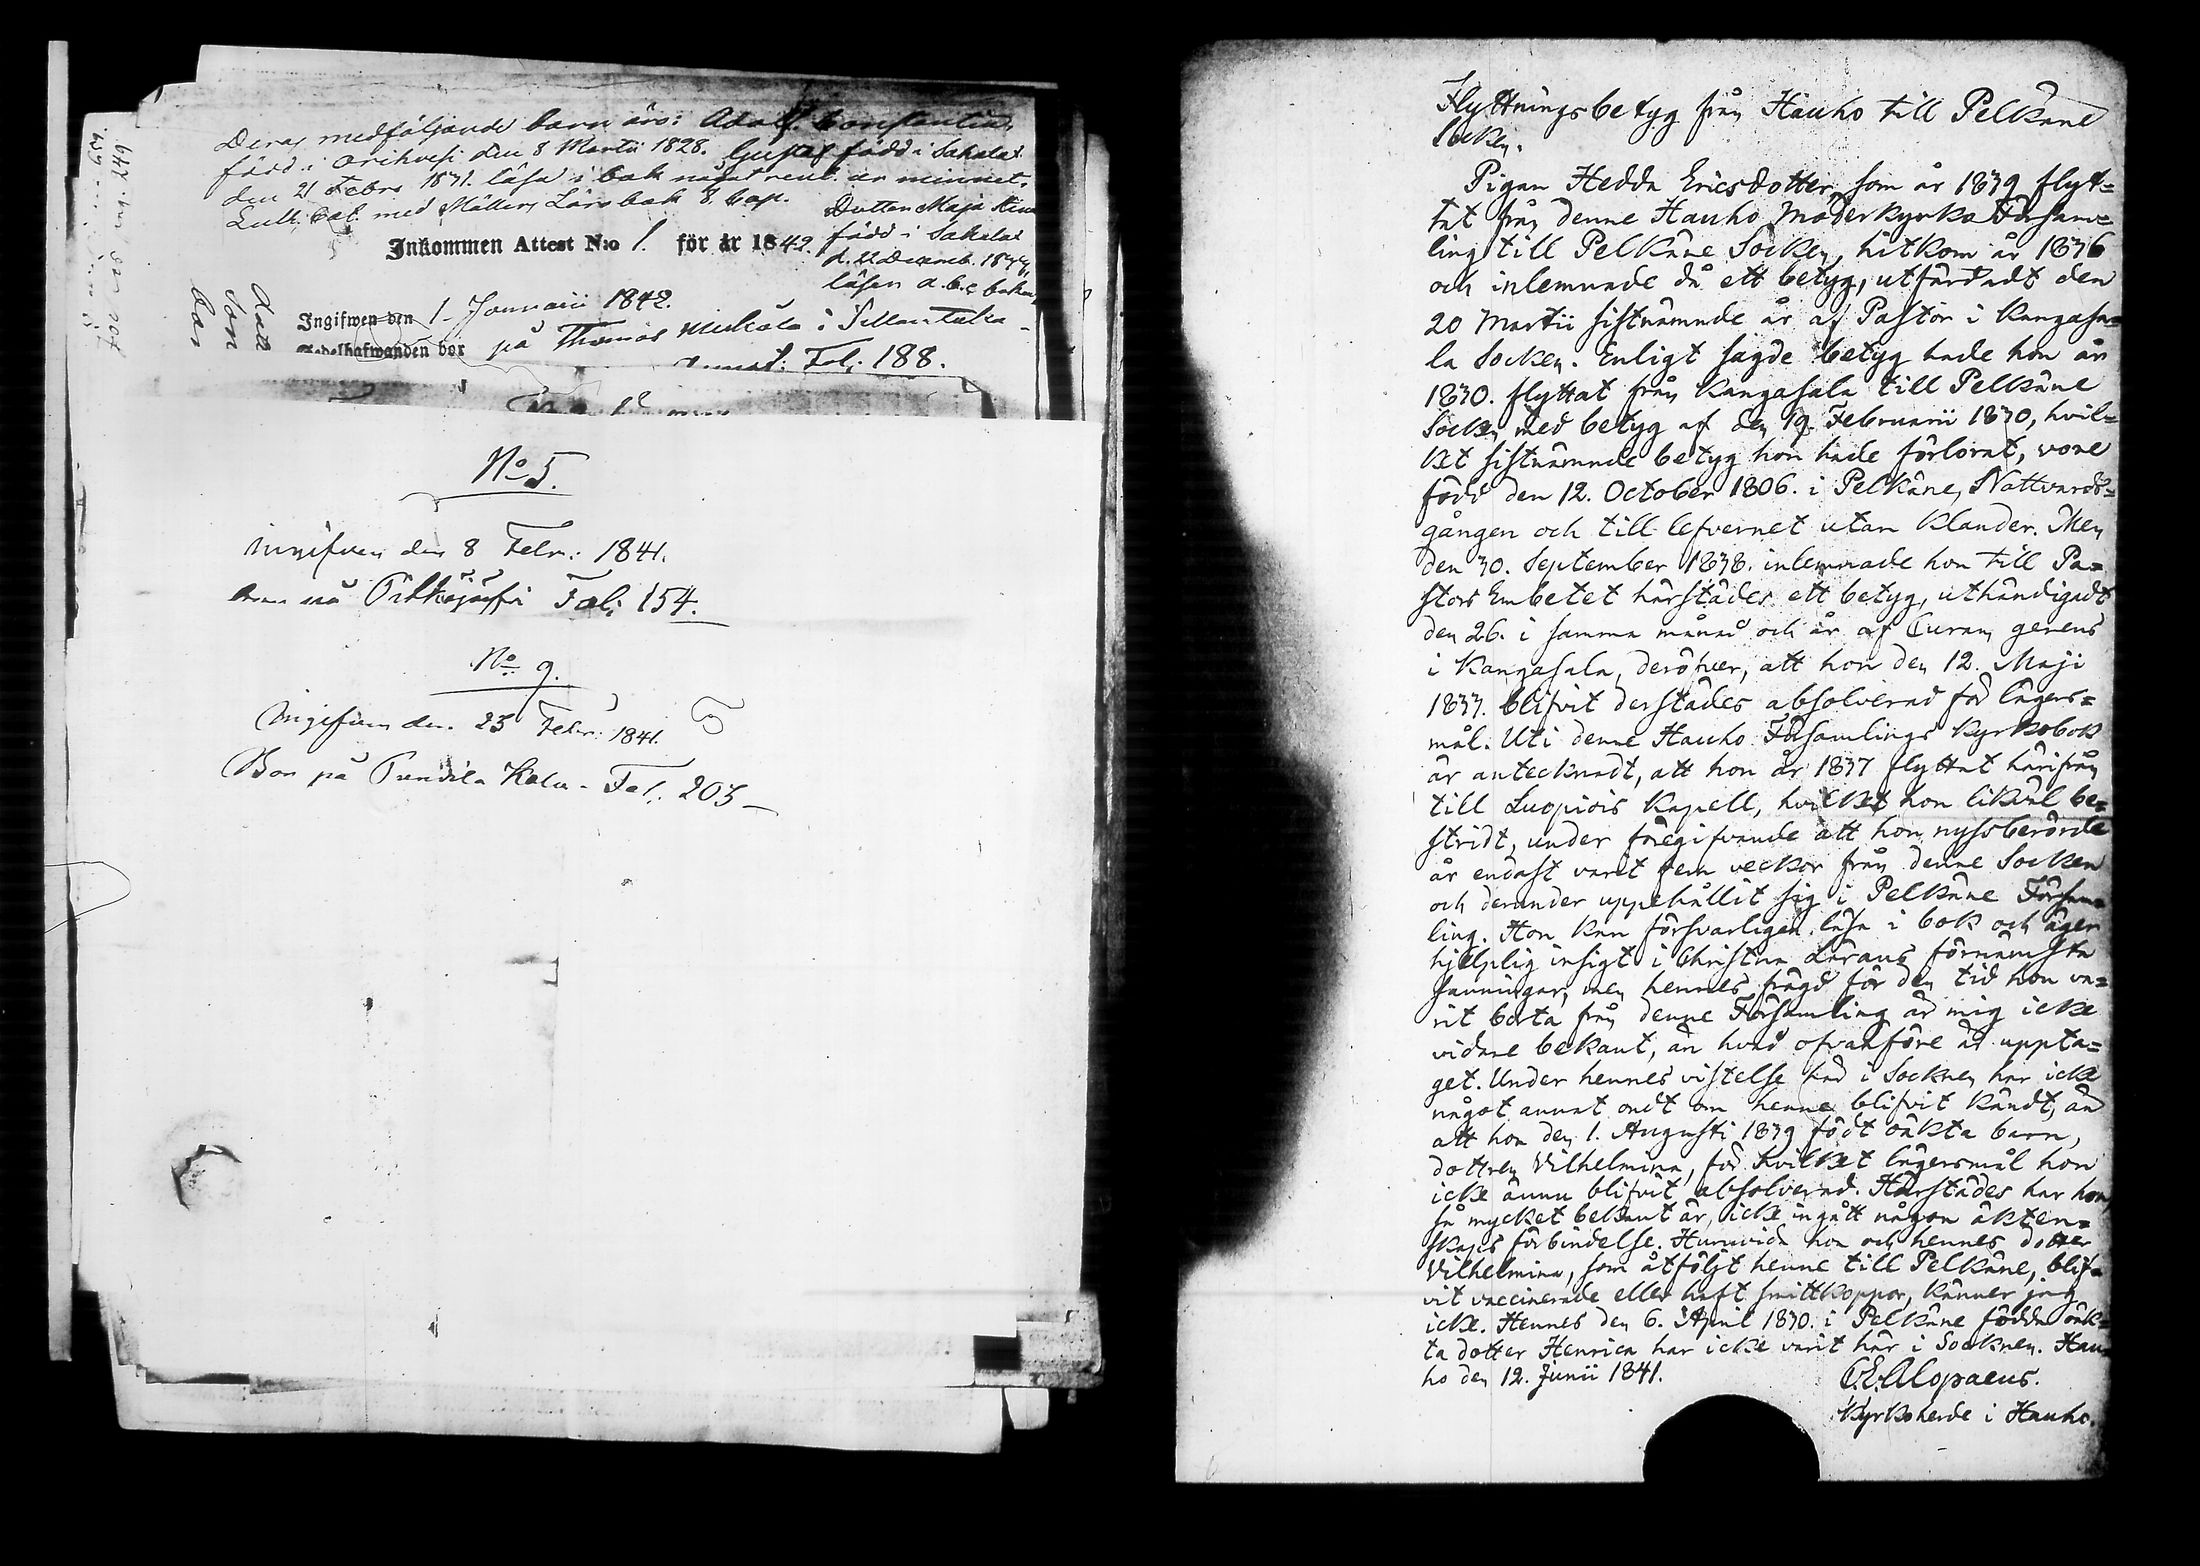 Deras medföljande barn äro: Adolf Constantin,
född i Orihvesi den 8 Martii 1828. Gustaf född i Sahalax
den 21 Febr. 1831. läsa i bok något rent ur minnet.
Luth. Cat. med Möllers Lärobok 8 Cap.
Dottren Maja Stina
född i Sahalax
d. 22 Decemb. 1834,
läser a.b.c boken
Inkommen Attest N:o 1. för år 1842.
Ingifwen den 1. Januarii 1842.
Sedelhafwanden bor på Thomas
Fol. 188.
No 5.
Ingifven den 8 Febr: 1841.
Fol; 154.
No 9.
Ingifven den 23 Febr: 1841.
Bor på Pundila Fol. 203
Flyttningsbetyg från Hauho till Pelkäne
Socken.
Pigan Hedda Ericsdotter, som år 1839 flyt=
tat från denne Hauho Moderkyrko Försam=
ling till Pelkäne Socken, hitkom år 1836
och inlemnade då ett betyg, utfärdadt den
20 Martii sistnämnde år af Pastor i Kangasa=
la Socken. Enligt sagde betyg hade hon år
1830. flyttat från Kangasala till Pelkäne
Socken med betyg af den 19. Februarii 1830, hvil=
ket sistnämnde betyg hon hade förlorat, vore
född den 12. October 1806. i Pelkäne, Nattvards=
gången och till lefvernet utan klander. Men
den 30. September 1838. inlemnade hon till Pa=
stors Embetet härstädes ett betyg, uthändigadt
den 26. i samma månad och år af Curam gerens
i Kangasala, deröfver, att hon den 12. Maji
1833. blifvit derstädes absolverad för lägers=
mål. Uti denne Hauho Församlings Kyrkobok
är antecknadt, att hon år 1837 flyttat härifrån
till Luopiois Kapell, hvilket hon likväl be=
stridt, under föregifvande att hon nyssberörde
år endast varit fem veckor från denne Socken
och derunder uppehållit sig i Pelkäne Försam=
ling. Hon kan försvarligen läsa i bok och äger
hjelplig insigt i Christna Lärans förnämsta
sanningar, men hennes frägd för den tid hon va=
rit borta från denne Församling är mig icke
vidare bekant, än hvad ofvanföre är uppta=
get. Under hennes vistelse här i Socknen har icke
något annat ondt om henne blifvit kändt, än
att hon den 1. Augusti 1839 födt oäkta barn,
dottren Vilhelmina, för hvilket lägersmål hon
icke ännu blifvit absolverad. Härstädes har hon,
så mycket bekant är, icke ingått någon äkten=
skaps förbindelse. Huruvida hon och hennes dotter
Vilhelmina, som åtföljt henne till Pelkäne, blif=
vit vaccinerade eller haft smittkoppor, känner jag
icke. Hennes den 6. April 1830. i Pelkäne födda oäk=
ta dotter Henrica har icke varit här i Socknen. Hau=
ho den 12. Junii 1841.
C.E. Alopaeus.
Kyrkoherde i Hauho.